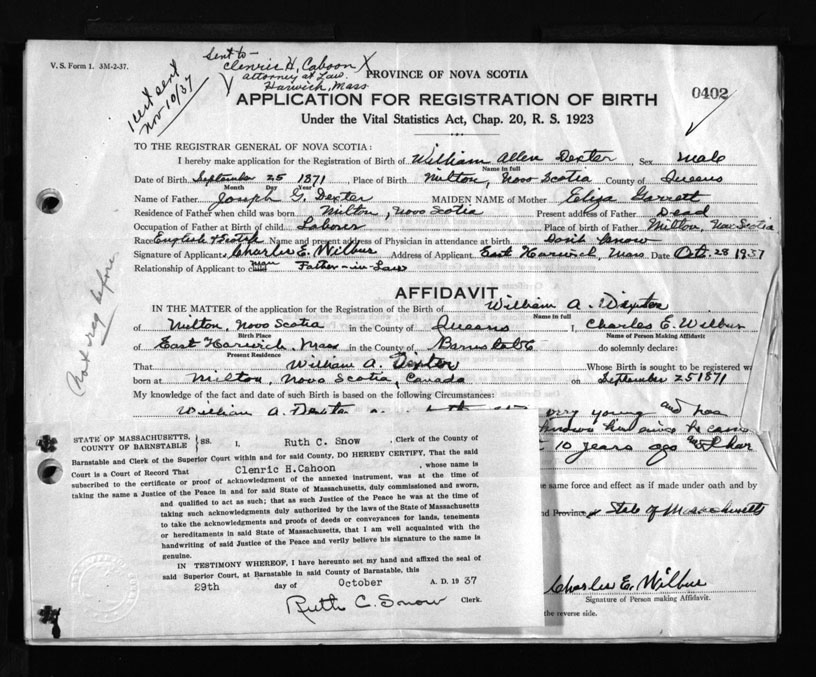 V. S. Form 1. 3M-2-37.
1 cert sent
Nov 10/37
Sent to-
Clenric H. Cahoon X
attorney at Law.
Harwich, Mass
PROVINCE OF NOVA SCOTIA
APPLICATION FOR REGISTRATION OF BIRTH
0402
Under the Vital Statistics Act, Chap. 20, R. S. 1923
TO THE REGISTRAR GENERAL OF NOVA SCOTIA:
I hereby make application for the Registration of Birth of William Allen Dexter, Sex Male
Name in full
Date of Birth September 25 1871 Place of Birth Milton, Nova Scotia County of Queens
Month Day Year
Name of Father Joseph G. Dexter MAIDEN NAME of Mother Eliza Garrett
Residence of Father when child was born Milton, Nova Scotia Present address of Father Dead
Occupation of Father at Birth of child Laborer Place of birth of Father Milton, Nova Scotia
Race English & Scotch Name and present address of Physician in attendance at birth Don't know
Signature of Applicant Charles E. Wilbur Address of Applicant East Harwich, Mass. Date Oct. 28 1937
Relationship of Applicant to child man Father-in-Law
Not reg before.
AFFIDAVIT
IN THE MATTER of the application for the Registration of the Birth of William A. Dexter
Name in full
of Milton, Nova Scotia in the County of Queens I, Charles E. Wilbur
Birth Place Name of Person Making Affidavit
of East Harwich, Mass in the County of Barnstable do solemnly declare:
Present Residence
That William A. Dexter Whose Birth is sought to be registered w
born at Milton, Nova Scotia, Canada on September 25 1871
My knowledge of the fact and date of such Birth is based on the following Circumstances:
William A. Dexter very young and has
known him since he came
10 years ago
STATE OF MASSACHUSETTS, COUNTY OF BARNSTABLE } SS. I, Ruth C. Snow, Clerk of the County of
Barnstable and Clerk of the Superior Court within and for said County, DO HEREBY CERTIFY, That the said
Court is a Court of Record That Clenric H. Cahoon, whose name is
subscribed to the certificate or proof of acknowledgment of the annexed instrument, was at the time of
taking the same a Justice of the Peace in and for said State of Massachusetts, duly commissioned and sworn,
and qualified to act as such; that as such Justice of the Peace he was at the time of
taking such acknowledgments duly authorized by the laws of the State of Massachusetts
to take the acknowledgments and proofs of deeds or conveyances for lands, tenements
or hereditaments in said State of Massachusetts, that I am well acquainted with the
handwriting of said Justice of the Peace and verily believe his signature to the same is
genuine.
IN TESTIMONY WHEREOF, I have hereunto set my hand and affixed the seal of
said Superior Court, at Barnstable in said County of Barnstable, this
29th day of October A. D. 19 37
Ruth C. Snow Clerk.
same force and effect as if made under oath and by
nd Province & State of Massachusetts
Charles E. Wilbur
Signature of Person making Affidavit.
the reverse side.